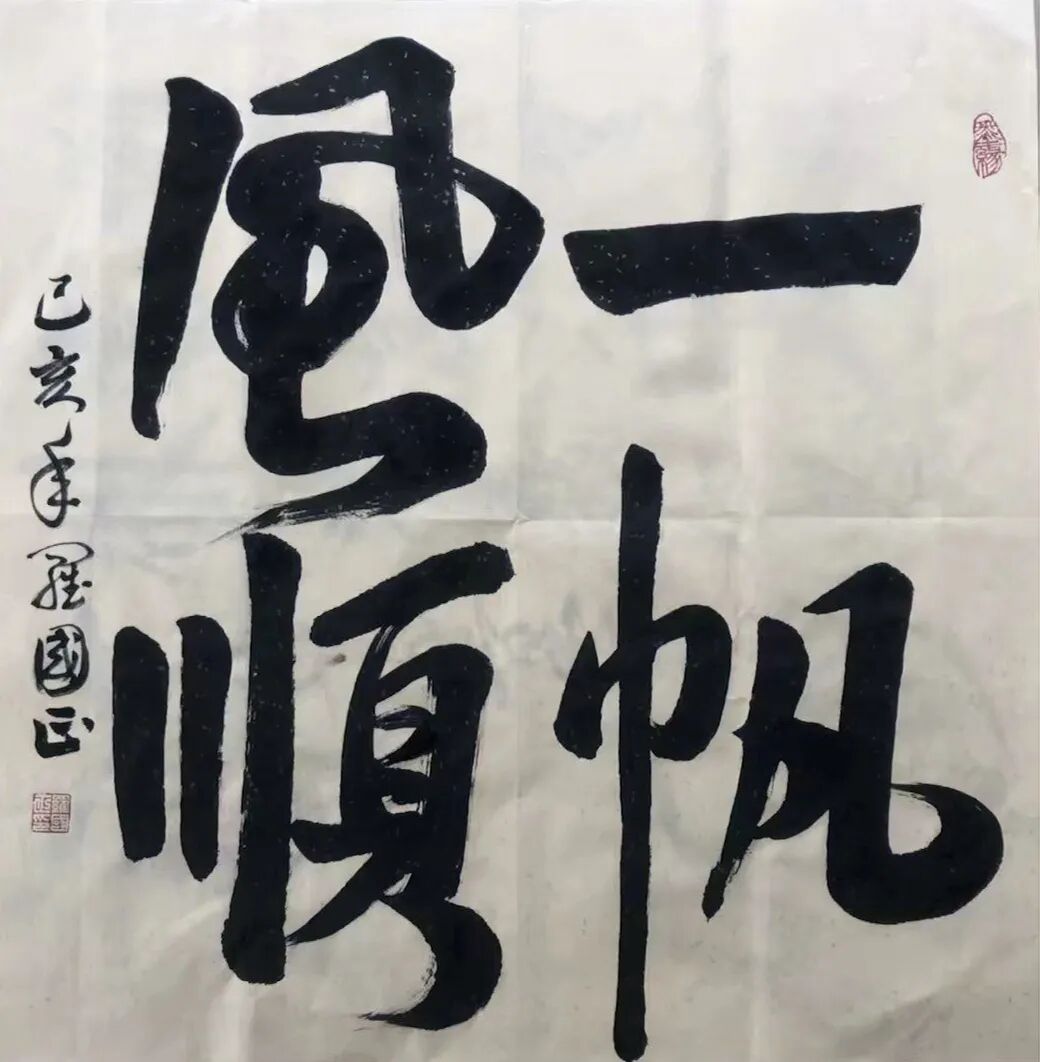 一帆
風順
己亥年羅國正